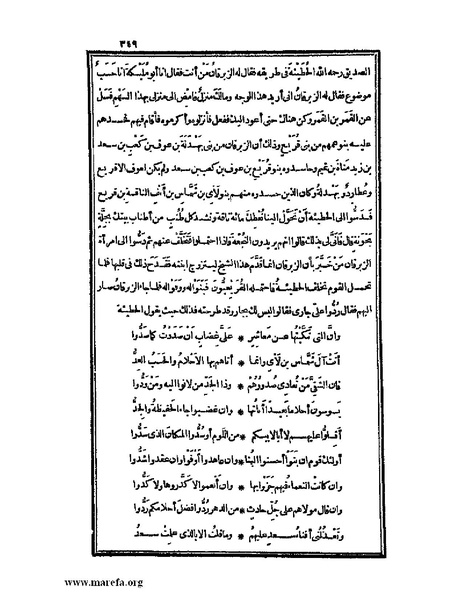 ٣٤٩
الصديق رحمه الله الحطيئة في طريقه فقال له الزبرقان من أنت فقال انا أبو مليكة انا حسب
موضوع فقال له الزبرقان انى أريد هذا الوجه ومالك منزل فامض الى منزلى بهذا السهم فسل
عن القمر بن القمر وكن هناك حتى أعود اليك ففعل فأنزلوه وأكرموه فأقام فيهم فحسدهم
عليه بنو عمهم من بنى قريع وذلك أن الزبرقان من بنى بهدلة بن عوف بن كعب بن سعد
بن زيد مناة بن تميم وحاسدوه بنو قريع بن عوف بن كعب بن سعد ولم يكن لعوف الا قريع
وعطارد وبهدلة وكان الذين حسدوه منهم بنو لأى بن شماس بن أنف الناقة بن قريع
فدسوا الى الحطيئة أن تحول الينا نعطك مائة ناقة ونشد كل طنب من أطناب بيتك بجلة
بحونة قال فأنى لى بذلك قالوا انهم يريدون النجعة فاذا احتملوا فتخلف عنهم ثم دسوا الى امرأة
الزبرقان من خبر بأن الزبرقان انما قدم هذا الشيخ ليتزوج ابنته فقدح ذلك فى قلبها فلما
تحمل القوم تخلف الحطيئة فاحتمله القريعيون فبنوا له ووفوا له فلما جاء الزبرقان صار
اليهم فقال ردوا على جارى فقالوا ليس لك بجار وقد طرحته فذلك حيث يقول الحطيئة
وان التى نكبتها عن معاشر * على غضاب أن صددت كما صدوا
أتت آل شماس بن لأى وانما * أتاهم بها الاحلام والحسب العد
فان الشقى من تعادى صدورهم * وذا الجد من لانوا اليه ومن ودوا
يسوسون أحلاما بعيدا أناتها * وان غضبوا جاء الحفيظة والجد
أقلوا عليهم لا أبا لابيكم * من اللوم أو سدوا المكان الذى سدوا
أولئك قوم ان بنوا أحسنوا البنا * وان عاهدوا أوفوا وان عقدوا شدوا
وان كانت النعماء فيهم جزوا بها * وان أنعموا لا كدروها ولا كدوا
وان قال مولاهم على جل حادث * من الدهر ردوا فضل أحلامكم ردوا
وتعذلنى أفناء سعد عليهم * وما قلت الا بالذى علمت سعد
www.marefa.org